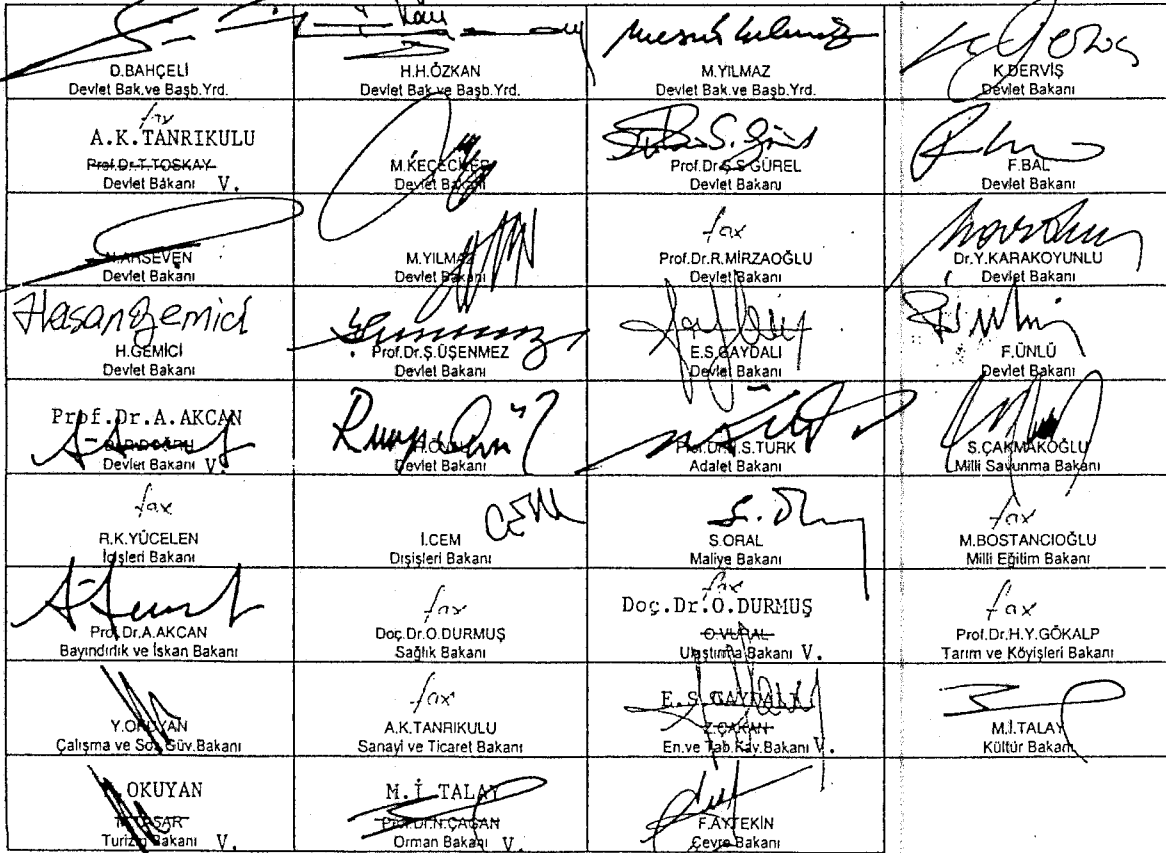 D.BAHÇELİ
Devlet Bak.ve Başb.Yrd.
H.H.ÖZKAN
Devlet Bak.ve Başb.Yrd.
M.YILMAZ
Devlet Bak.ve Başb.Yrd.
K.DERVİŞ
Devlet Bakanı
fax
A.K.TANRIKULU
Prof.Dr.T.TOSKAY
Devlet Bakanı V.
M.KEÇECİLER
Devlet Bakanı
Prof.Dr.Ş.S.GÜREL
Devlet Bakanı
F.BAL
Devlet Bakanı
N.ARSEVEN
Devlet Bakanı
M.YILMAZ
Devlet Bakanı
fax
Prof.Dr.R.MİRZAOĞLU
Devlet Bakanı
Dr.Y.KARAKOYUNLU
Devlet Bakanı
Hasan Gemici
H.GEMİCİ
Devlet Bakanı
Prof.Dr.Ş.ÜŞENMEZ
Devlet Bakanı
E.S.GAYDALI
Devlet Bakanı
F.ÜNLÜ
Devlet Bakanı
Prof.Dr.A.AKCAN
Devlet Bakanı V.
Prof.Dr.H.S.TÜRK
Adalet Bakanı
S.ÇAKMAKOĞLU
Milli Savunma Bakanı
fax
R.K.YÜCELEN
İçişleri Bakanı
CEM
İ.CEM
Dışişleri Bakanı
S.ORAL
Maliye Bakanı
fax
M.BOSTANCIOĞLU
Milli Eğitim Bakanı
Prof.Dr.A.AKCAN
Bayındırlık ve İskan Bakanı
fax
Doç.Dr.O.DURMUŞ
Sağlık Bakanı
fax
Doç.Dr.O.DURMUŞ
O.VURAL
Ulaştırma Bakanı V.
fax
Prof.Dr.H.Y.GÖKALP
Tarım ve Köyişleri Bakanı
Y.OKUYAN
Çalışma ve Sos.Güv.Bakanı
fax
A.K.TANRIKULU
Sanayi ve Ticaret Bakanı
E.S.GAYDALI
Z.ÇAKAN
En.ve Tab.Kay.Bakanı V.
M.İ.TALAY
Kültür Bakanı
OKUYAN
Turizm Bakanı V.
M.İ.TALAY
Prof.Dr.N.ÇAĞAN
Orman Bakanı V.
F.AYTEKİN
Çevre Bakanı